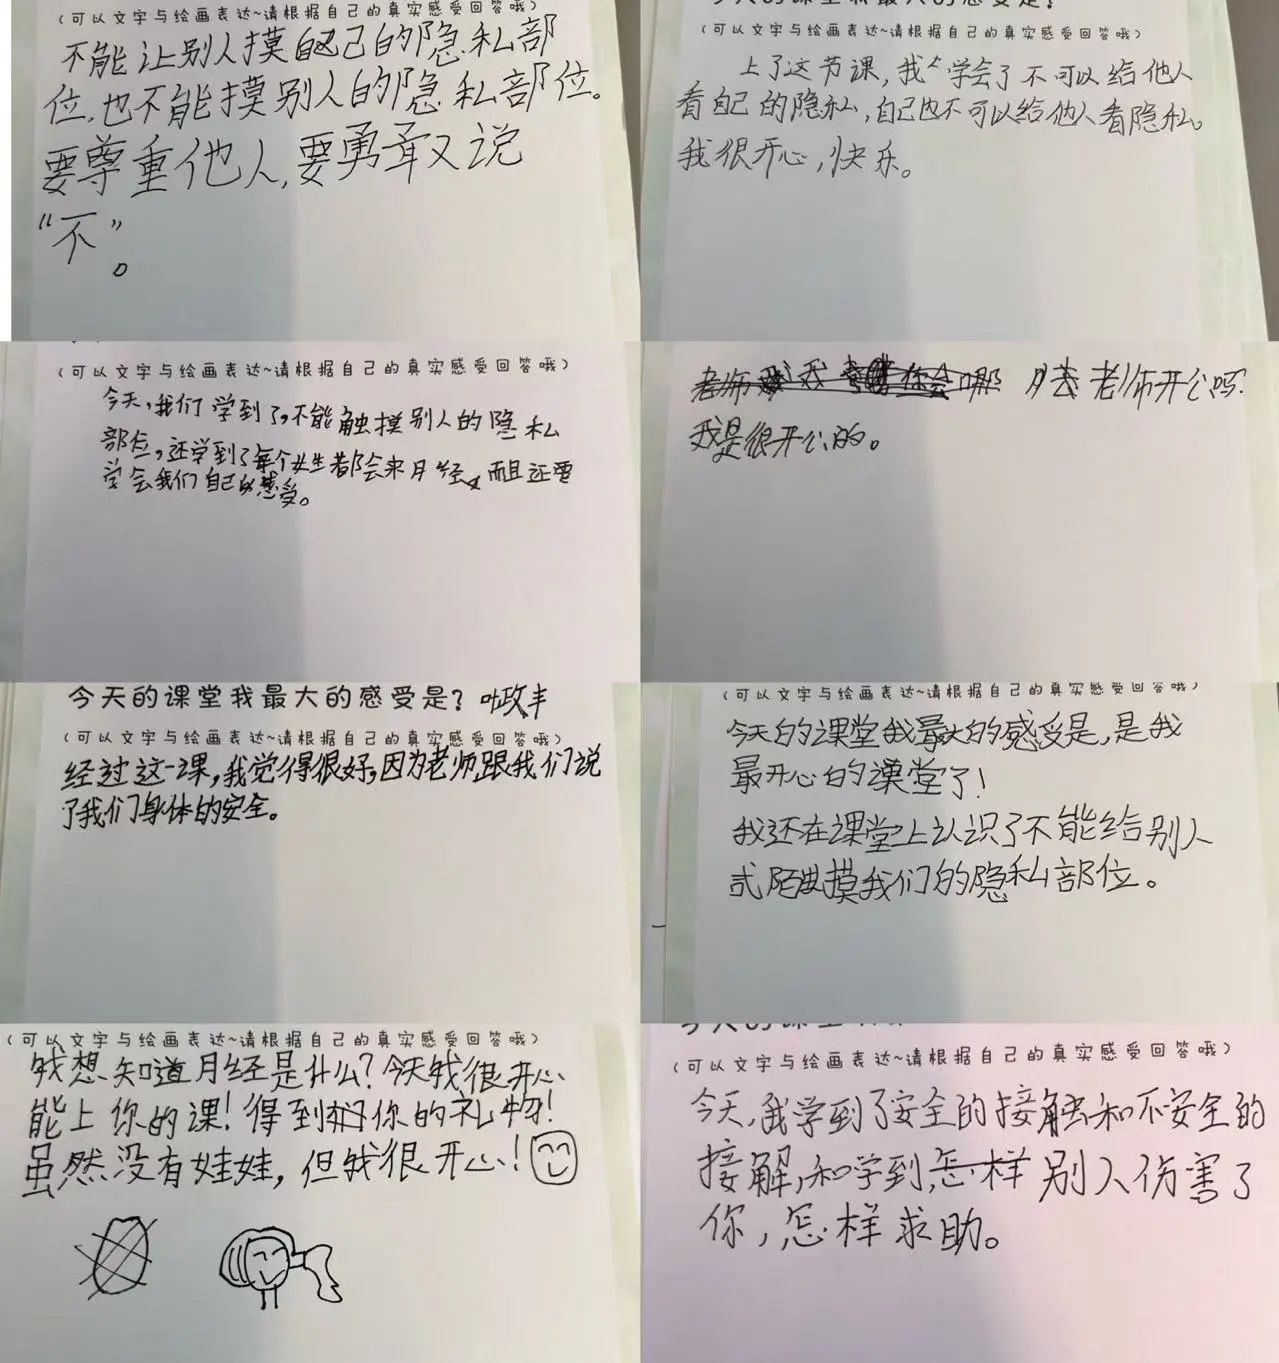 （可以文字与绘画表达~请根据自己的真实感受回答哦）
不能让别人摸自己的隐私部
位,也不能摸别人的隐私部位。
要尊重他人,要勇敢又说
“不”。
今天的课堂我最大的感受是?
（可以文字与绘画表达~请根据自己的真实感受回答哦）
上了这节课,我学会了不可以给他人
看自己的隐私,自己也不可以给他人看隐私。
我很开心,快乐。
（可以文字与绘画表达~请根据自己的真实感受回答哦）
今天,我们学到了,不能触摸别人的隐私
部位,还学到了每个女生都会来月经,而且还要
学会我们自己的感受。
老师开心吗?
我是很开心的。
今天的课堂我最大的感受是?
（可以文字与绘画表达~请根据自己的真实感受回答哦）
经过这一课,我觉得很好,因为老师跟我们说
了我们身体的安全。
（可以文字与绘画表达~请根据自己的真实感受回答哦）
今天的课堂我最大的感受是,是我
最开心的课堂了!
我还在课堂上认识了不能给别人
摸我们的隐私部位。
（可以文字与绘画表达~请根据自己的真实感受回答哦）
我想知道月经是什么?今天我很开心
能上你的课!得到你的礼物!
虽然没有娃娃,但我很开心!
（可以文字与绘画表达~请根据自己的真实感受回答哦）
今天,我学到了安全的接触和不安全的
接解,和学到,怎样别人伤害了
你,怎样求助。